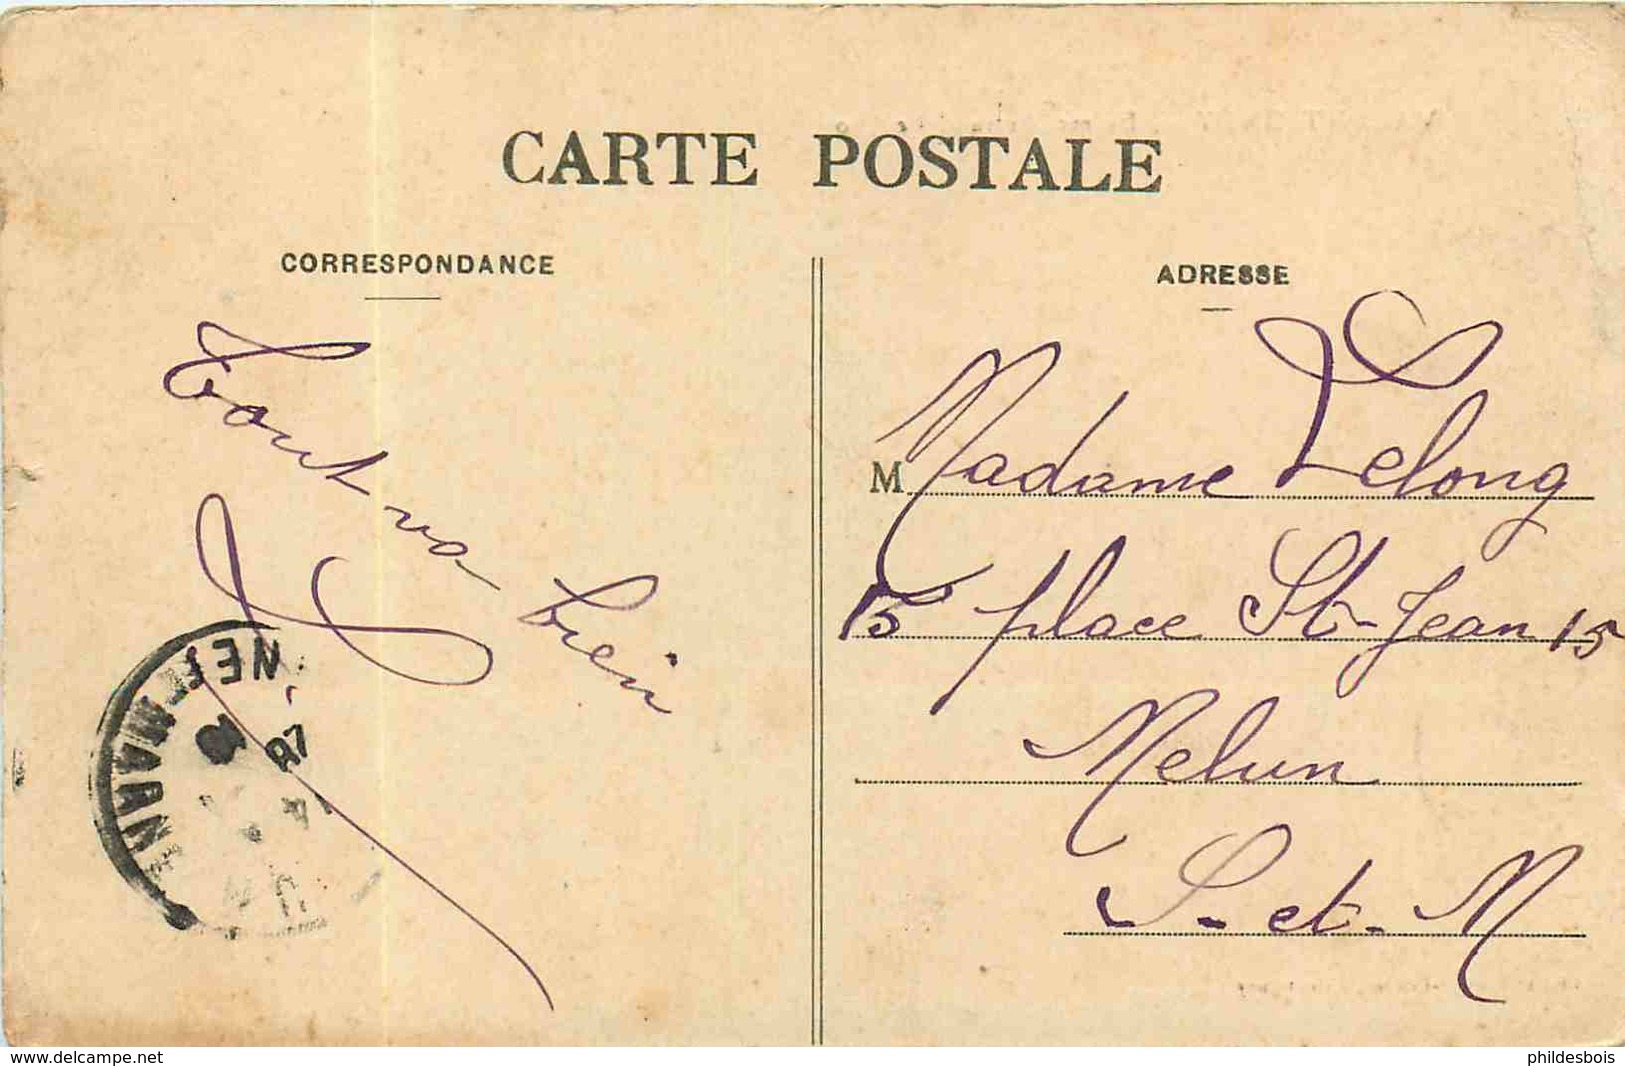 CARTE POSTALE
CORRESPONDANCE
tout va bien
ADRESSE
M Madame Lelong
15 place St-Jean 15
Melun
S-et-M
www.delcampe.net
phildesbois